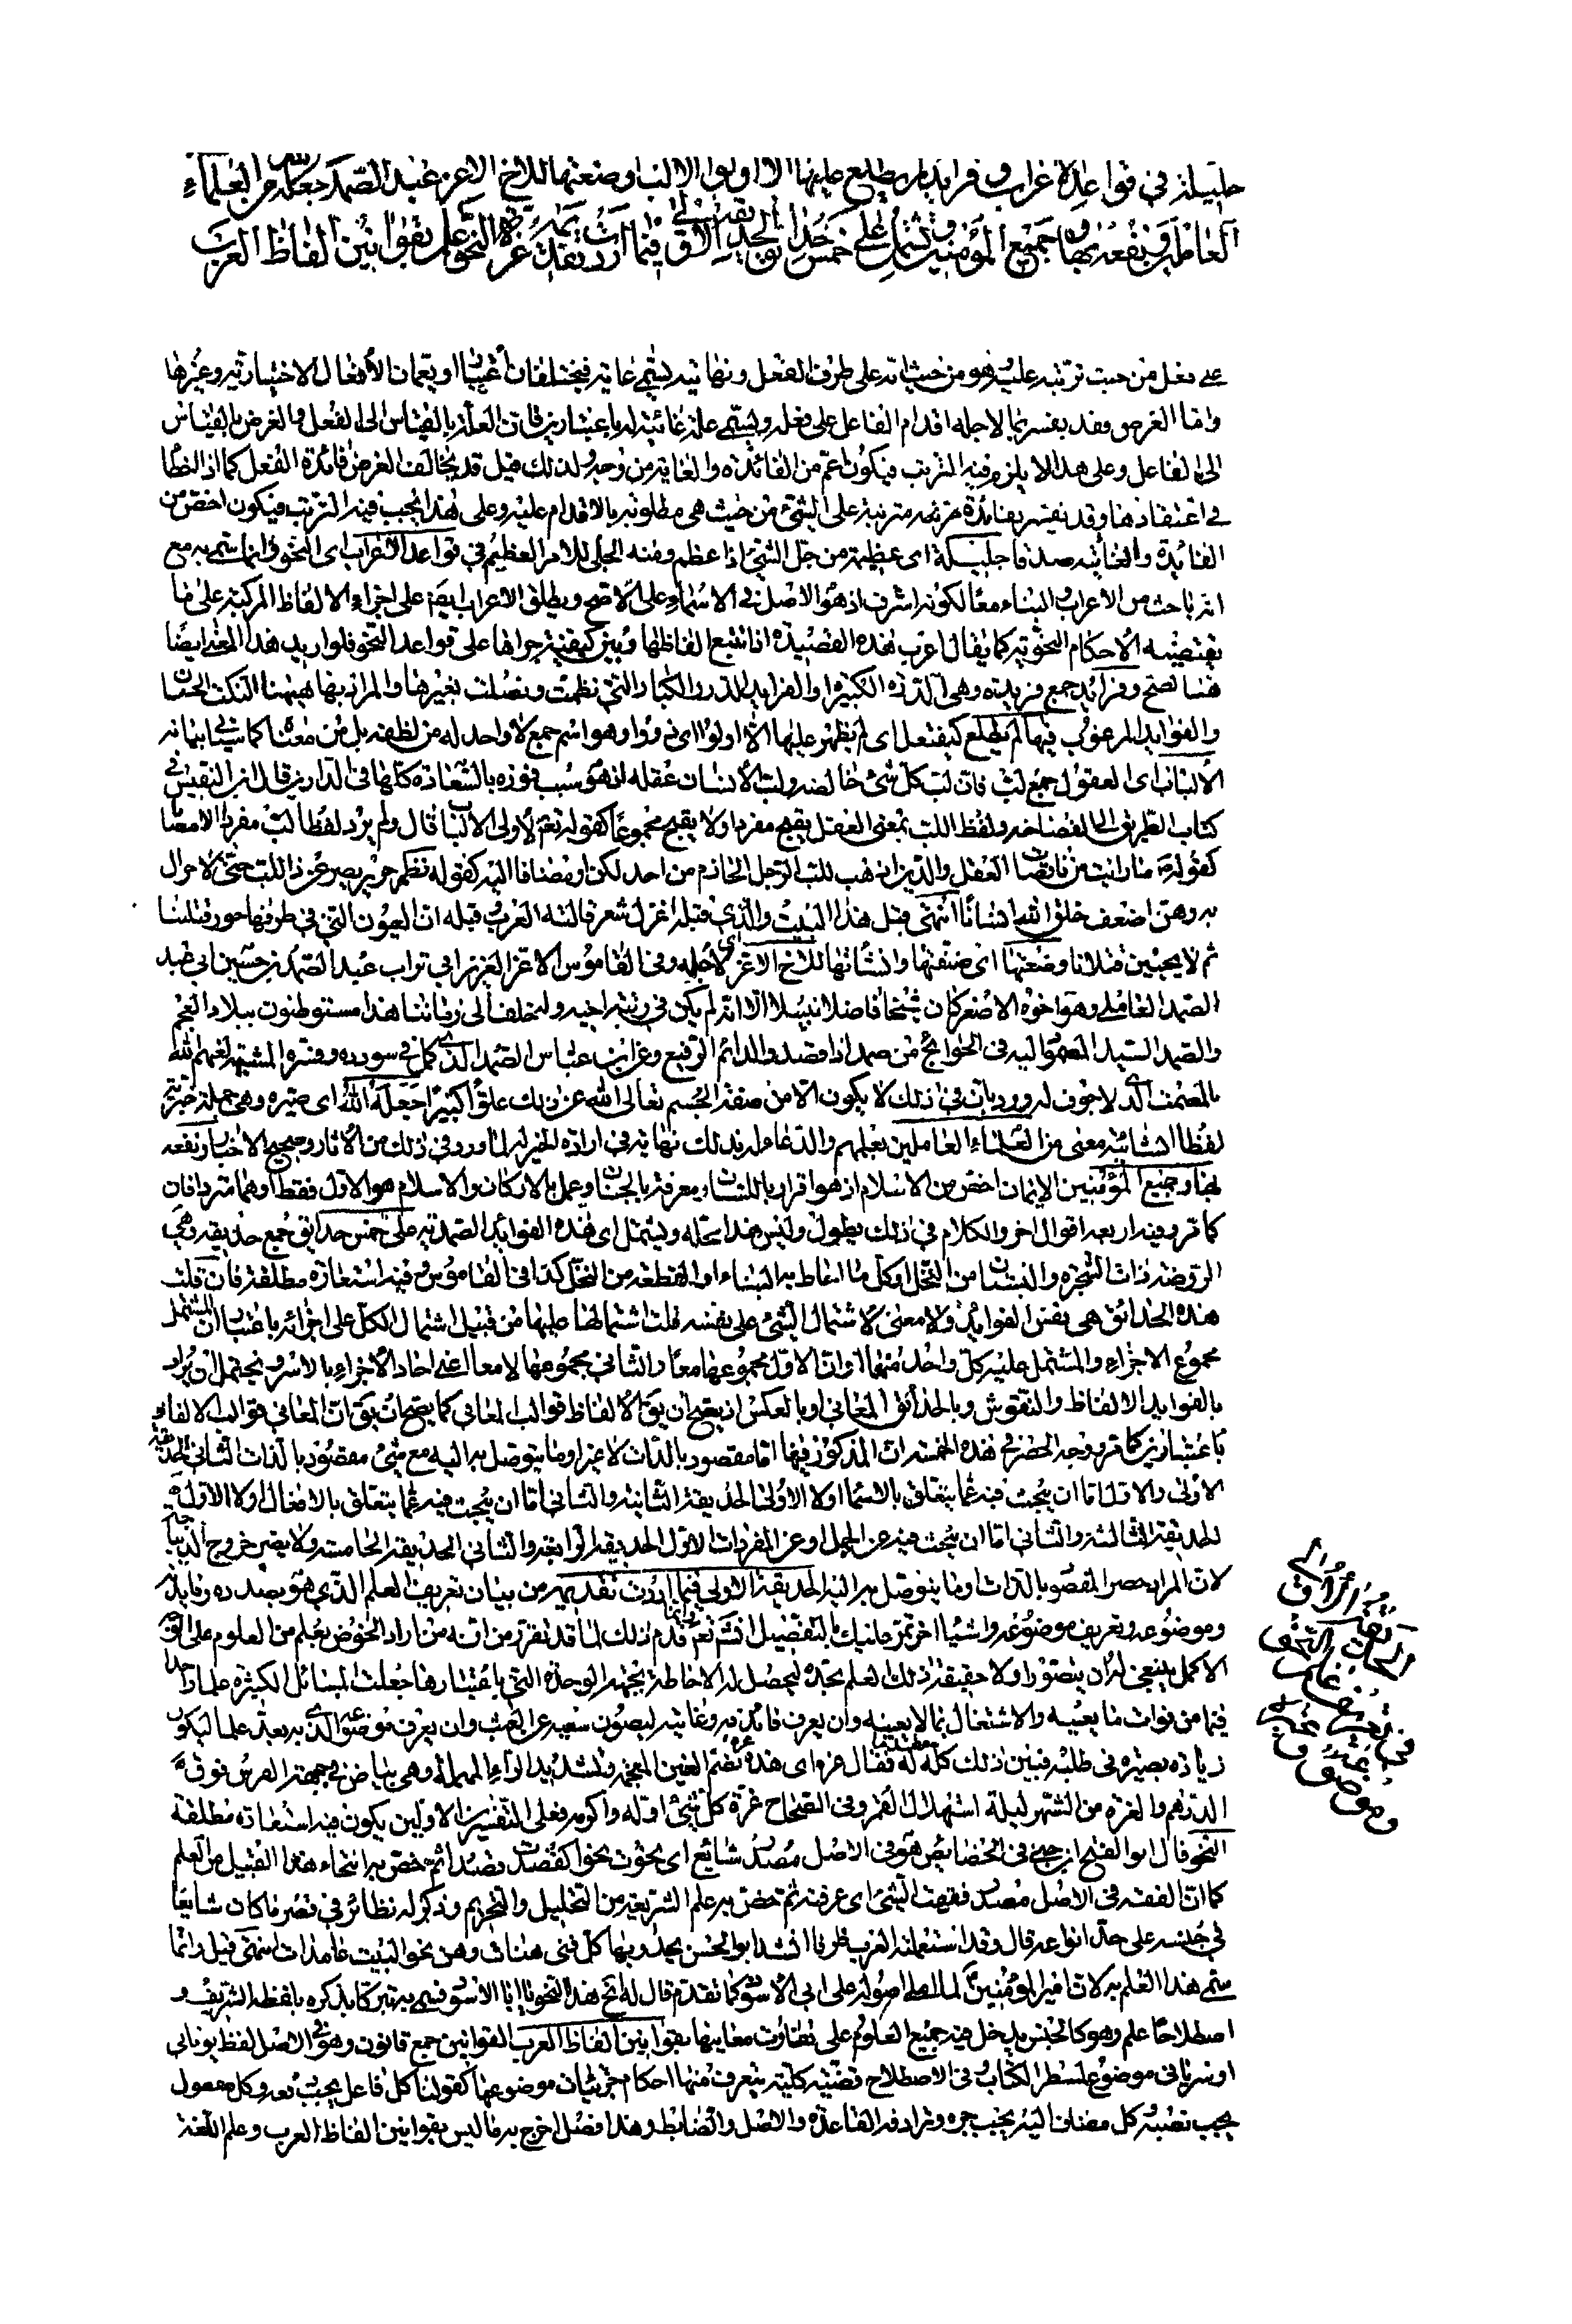 جليلة في قواعد الاعراب و فرايد لم يطلع عليها الا اولوا الالباب وضعتها للاخ الاعز عبد الصمد جعله الله من العلماء
العاملين و نفعه بها و جميع المؤمنين و تشتمل على خمس حدائق الحديقة الاولى فيما اردت تقديمه غرة النحو علم بقوانين الفاظ العرب
على فعل من حيث ترتبه عليه هو من حيث انه على طرف الفعل و نهايته يسمى غاية فيختلفان اعتبارا و يعمان الافعال الاختيارية و غيرها
و اما الغرض فقد يفسر بما لاجله اقدام الفاعل على فعله و يسمى علة غائية له باعتبارين فان العلة بالقياس الى الفعل و الغرض بالقياس
الى الفاعل و على هذا لا يلزم فيه الترتب فيكون اعم من الفائدة و الغاية من وجه و لذلك قيل قد يخالف الغرض فائدة الفعل كما اذا اخطا
في اعتقادها و قد يفسر بفائدة مترتبة على الشيء من حيث هي مطلوبة بالاقدام عليه و على هذا يجب فيه الترتب فيكون اخص من
الفائدة و الغاية صدقا جليلة اى عظيمة من جل الشيء اذا عظم و منه الجلى للامر العظيم في قواعد الاعراب اى النحو و انما سمى به مع
انه باحث من الاعراب و البناء معا لكونه اشرف اذ هو الاصل في الاسماء و على الاصح و يطلق الاعراب ايضا على اجراء الالفاظ المركبة على ما
تقتضيه الاحكام النحوية كما يقال اعرب هذه القصيدة اذا تتبع الفاظها و بين كيفية جراها على قواعد النحو فلو اريد هذا المعنى ايضا
هنا لصح و فرايد جمع فريدة و هي الدرة الكبيرة او الفرايد الدرر الكبار التي نظمت و فصلت بغيرها و المراد بها هيهنا النكت الحسان
و الفوايد المرغوب فيها لم يطلع كيفتعل اى لم يظهر عليها الا اولوا اى ذووا و هو اسم جمع لا واحد له من لفظه بل من معناه كما سيأتي بيانه
الالباب اى العقول جمع لب فان لب كل شيء خالصه و لب الانسان عقله اذ هو سبب فوزه بالسعادة كلها في الدارين قال ابن النفيس في
كتاب الطريق الى الفصاحة و لفظ اللب بمعنى العقل يقبح مفردا و لا يقبح مجموعا كقوله تعالى لاولى الالباب قال و لم يرد لفظ لب مفردا الا مضافا
كقوله ما رايت من ناقصات العقل و الدين اذهب للب الرجل الحازم من احدلكن او مضافا اليه كقوله نظم جرير يصرعن ذا اللب حتى لا حراك
به و هن اضعف خلق الله انسانا انتهى قيل هذا البيت و الذي قبله اغزل شعر قالته العرب قبله ان العيون التي في طرفها حور قتلننا
ثم لا يحيين قتلانا وضعتها اى صنفتها و انشأتها للاخ الاعز اى لاجله و في القاموس الاعز العزيز ابي تراب عبد الصمد بن حسين ابن عبد
الصمد العاملي و هو اخوه الاصغر كان شيخا فاضلا نبيلا الا انه لم يكن في رتبة اخيه و له خلف الى زماننا هذا مستوطنون ببلاد العجم
و الصمد السيد المصمود اليه في الحوائج من صمد اذا قصد و الدائم الرفيع و عن ابن عباس الصمد الذي كمل في سودده و فسره المشبهة لعنهم الله
بالمصمت الذي لا جوف له و رد بان ذلك لا يكون الا من صفة الجسم تعالى الله عن ذلك علوا كبيرا جعله الله اى صيره و هي جملة خبرية
لفظا انشائية معنى من العلماء العاملين بعلمهم و الدعاء له بذلك نهاية في ارادة الخير له لما ورد في ذلك من الاثار و صحيح الاخبار و نفعه
بها و جميع المؤمنين الايمان اخص من الاسلام اذ هو اقرار باللسان و معرفة بالجنان و عمل بالاركان و الاسلام هو الاول فقط او هما مترادفان
كما قرر و فيه اربعة اقوال اخر و الكلام في ذلك يطول و ليس هذا محله و يشتمل اى هذه الفوايد الصمدية على خمس حدايق جمع حديقة و هي
الروضة ذات الشجرة و البستان من النخل او كل ما احاط به البناء او القطعة من النخل كذا في القاموس و فيه استعارة مطلقة فان قلت
هذه الحدائق هي نفس الفوايد و لا معنى لاشتمال الشيء على نفسه قلت اشتمالها عليها من قبيل اشتمال الكل على اجزائه باعتبار ان المشتمل
مجموع الاجزاء و المشتمل عليه كل واحد منها او ان الاول مجموعها معا و الثاني مجموعها لا معا اعنى احاد الاجزاء بالاسر و يحتمل ان يراد
بالفوايد الالفاظ و النقوش و بالحدائق المعاني او بالعكس اذ يصح ان يق الالفاظ قوالب المعاني كما يصح ان يق ان المعاني قوالب الالفاظ
باعتبارين كما قرر وجه الحصر في هذه الخمسة ان المذكور فيها اما مقصود بالذات لا غير او ما يتوصل به اليه مع شيء مقصود بالذات الثاني الحديقة
الاولى و الاول اما ان يبحث فيه عما يتعلق بالاسماء او لا الاول الحديقة الثانية و الثاني اما ان يبحث فيه عما يتعلق بالافعال او لا الاول
الحديقة الثالثة و الثاني اما ان يبحث فيه عن الجمل او عن المفردات الاول الحديقة الرابعة و الثاني الحديقة الخامسة و لا يضر خروج الديباجة
لان المراد حصر المقصود بالذات او ما يتوصل به اليه الحديقة الاولى فيما اردت تقديمه من بيان تعريف العلم الذي هو بصدده و فايدته
و موضوعه و تعريف موضوعه و اشياء اخر تمر عليك بالتفصيل انش تعالى و انما قدم ذلك لما قد تقرر من انه من اراد الخوض بعلم من العلوم على الوجه
الاكمل ينبغي له ان يتصور اولا حقيقة ذلك العلم بحده ليحصل له الاحاطة بجهة الوحدة التي باعتبارها جعلت المسائل الكثيرة علما واحدا
فيما من فوات ما يعنيه و الاشتغال بما لا يعنيه و ان يعرف فائدته و غايته ليصون سعيه عن العبث و ان يعرف موضوعه الذي به يعد علما ليكون
زيادة بصيرة في طلبه فبين ذلك كله له فقال غرة اى هذه غرة بضم الغين المعجمة و تشديد الراء المهملة و هي بياض في جبهة الفرس فوق
الدرهم و الغرة من الشهر ليلة استهلال القمر و في الصحاح غرة كل شيء اوله و اكرمه فعلى التفسيرين الاولين يكون فيه استعارة مطلقة
النحو قال ابو الفتح ابن جني في الخصايص هو في الاصل مصدر شايع اى نحوت نحوا كقصدت قصدا ثم خص به انتحاء هذا القبيل من العلم
كما ان الفقه في الاصل مصدر فقهت الشيء اى عرفته ثم خص به علم الشريعة من التحليل و التحريم و ذكر له نظائر في قصر ما كان شايعا
في جنسه على احد انواعه قال و قد استعملته العرب ظرفا انشد ابو الحسن يحدو بها كل فتى هيات و هن نحو البيت عامدات انتهى قيل و انما
سمى هذا العلم به لان امير المؤمنين لما املى اصوله على ابي الاسود كما تقدم قال له انح هذا النحو يا ابا الاسود فسمي به تبركا بذكره بلفظه الشريف و
اصطلاحا علم و هو كالجنس يدخل فيه جميع العلوم على تفاوت معانيها بقوانين الفاظ العرب القوانين جمع قانون و هو في الاصل لفظ يوناني
او سرياني موضوع لمسطر الكتاب و في الاصطلاح قضية كلية يتعرف منها احكام جزئيات موضوعها كقولنا كل فاعل يجب رفعه و كل مفعول
يجب نصبه كل مضاف اليه يجب جره و ترادفه القاعدة و الاصل و الضابط و هذا فصل اخرج به ما ليس بقوانين الفاظ العرب و علم اللغة
الحديقة الاولى
في تعريف علم النحو
و موضوعه